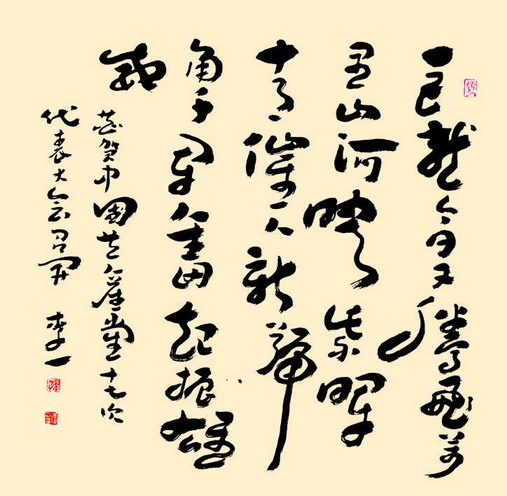 巨龍今日又騰飛萬
里山河映紫暉
十催人新號
角千軍奮起振雄
威
恭賀中國共產黨十七次
代表大会召開 李一